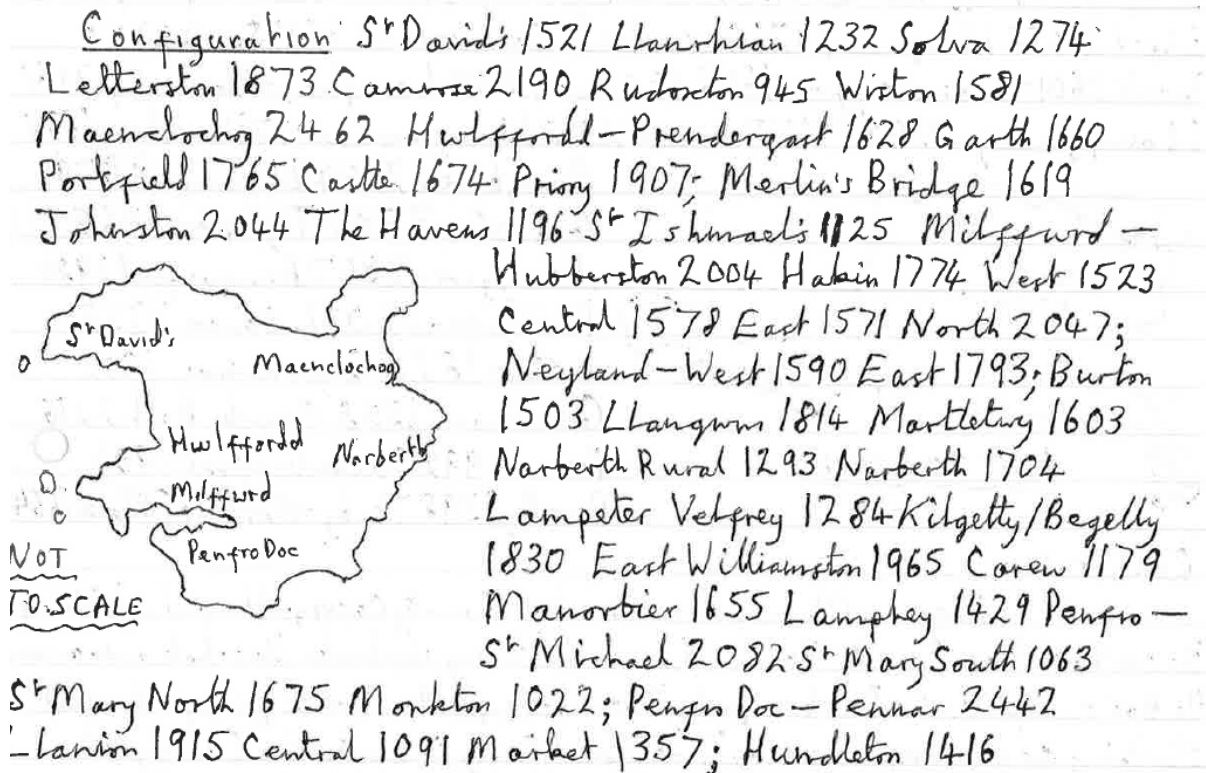 Configuration St David's 1521 Llanrhian 1232 Solva 1274
Letterston 1873 Camrose 2190 Rudbaxton 945 Wiston 1581
Maenclochog 2462 Hwlffordd - Prendergast 1628 Garth 1660
Portfield 1765 Castle 1674 Priory 1907; Merlin's Bridge 1619
Johnston 2044 The Havens 1196 St Ishmael's 1125 Milffwrd -
Hubberston 2004 Hakin 1774 West 1523
Central 1578 East 1571 North 2047;
Neyland - West 1590 East 1793; Burton
1503 Llangwm 1814 Martletwy 1603
Narberth Rural 1293 Narberth 1704
Lampeter Velfrey 1284 Kilgetty/Begelly
1830 East Williamston 1965 Carew 1179
Manorbier 1655 Lamphey 1429 Penfro -
St Michael 2082 St Mary South 1063
St Mary North 1675 Monkton 1022; Penfro Doc - Pennar 2442
Llanion 1915 Central 1091 Market 1357; Hundleton 1416
St David's
Maenclochog
Hwlffordd
Narberth
Milffwrd
Penfro Doc
NOT
TO SCALE